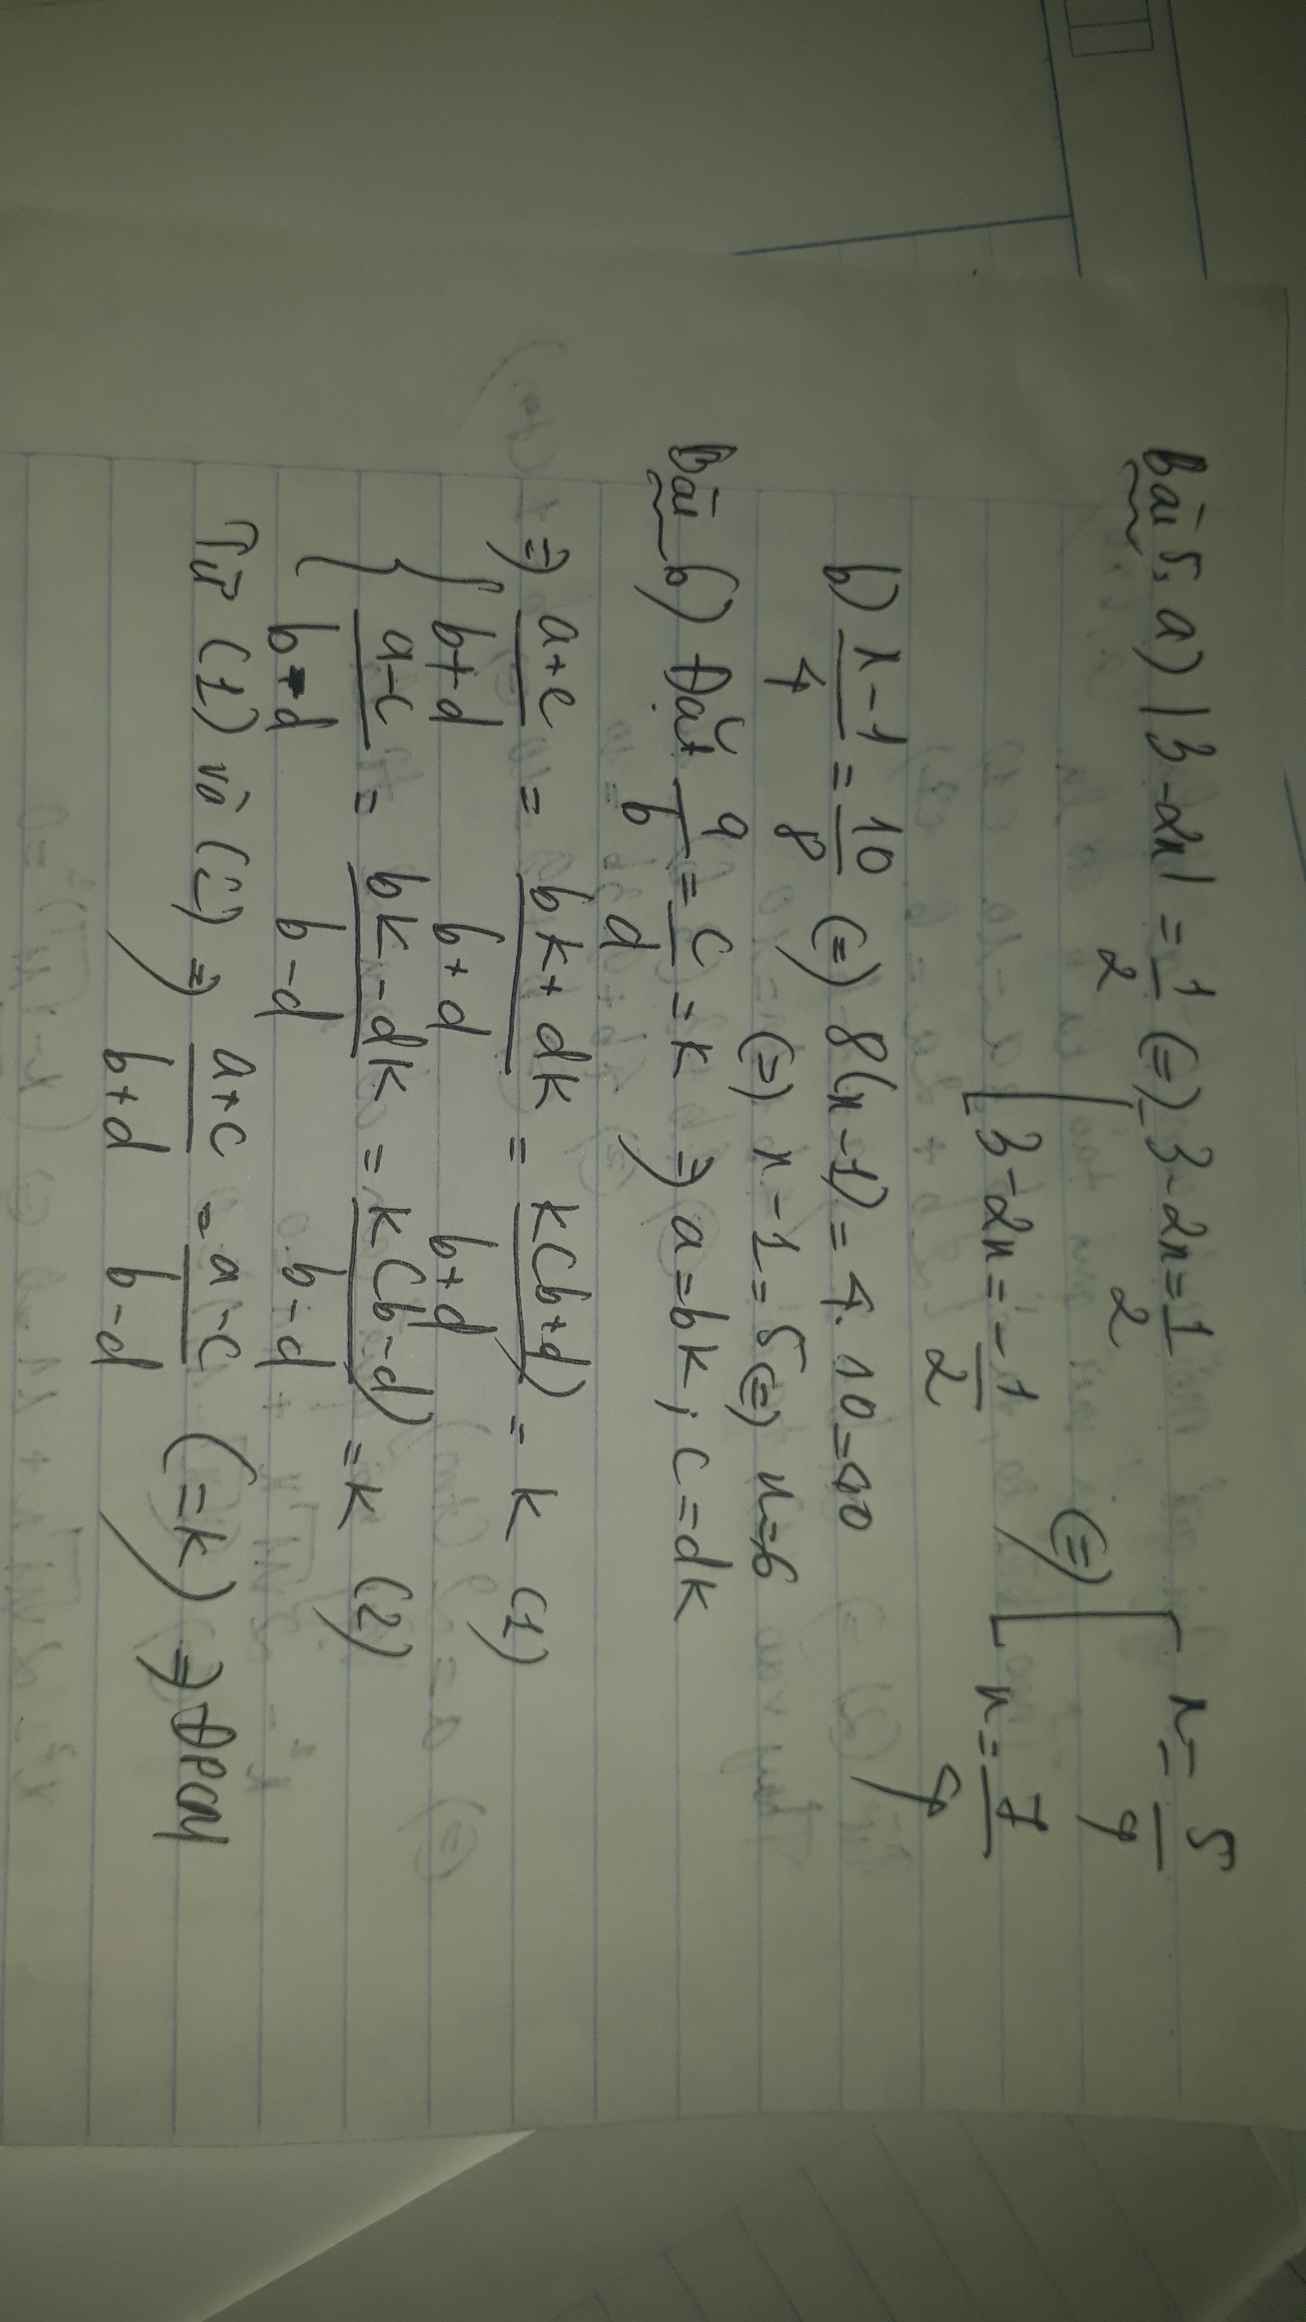 Bài 5, a) |3-2x| = 1/2 (=) [ 3-2x = 1/2 (=) [ x = 5/4
3-2x = -1/2 x = 7/4
b) x-1/4 = 10/8 (=) 8(x-1) = 4.10 = 40
(=) x-1 = 5 (=) x=6
Bài 6) Đặt a/b = c/d = k => a = bk; c = dk
=> { a+c/b+d = bk+dk/b+d = k(b+d)/b+d = k (1)
a-c/b-d = bk-dk/b-d = k(b-d)/b-d = k (2)
Từ (1) và (2) => a+c/b+d = a-c/b-d (=k) => ĐPCM